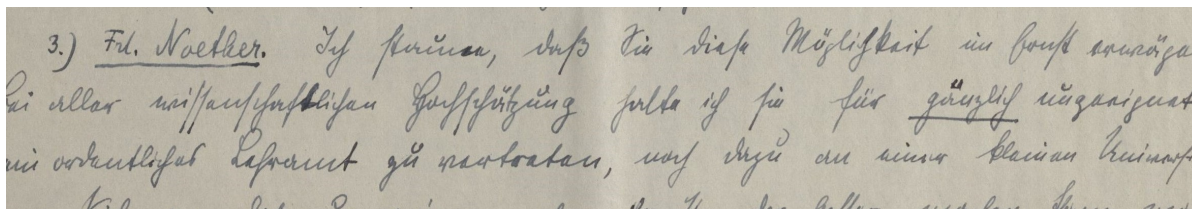 3.) Frl. Noether. Ich staune, daß Sie diese Möglichkeit im Ernst erwäge
bei aller wissenschaftlichen Hochschätzung halte ich sie für gänzlich ungeeignet
ein ordentliches Lehramt zu vertreten, noch dazu an einer kleinen Univers